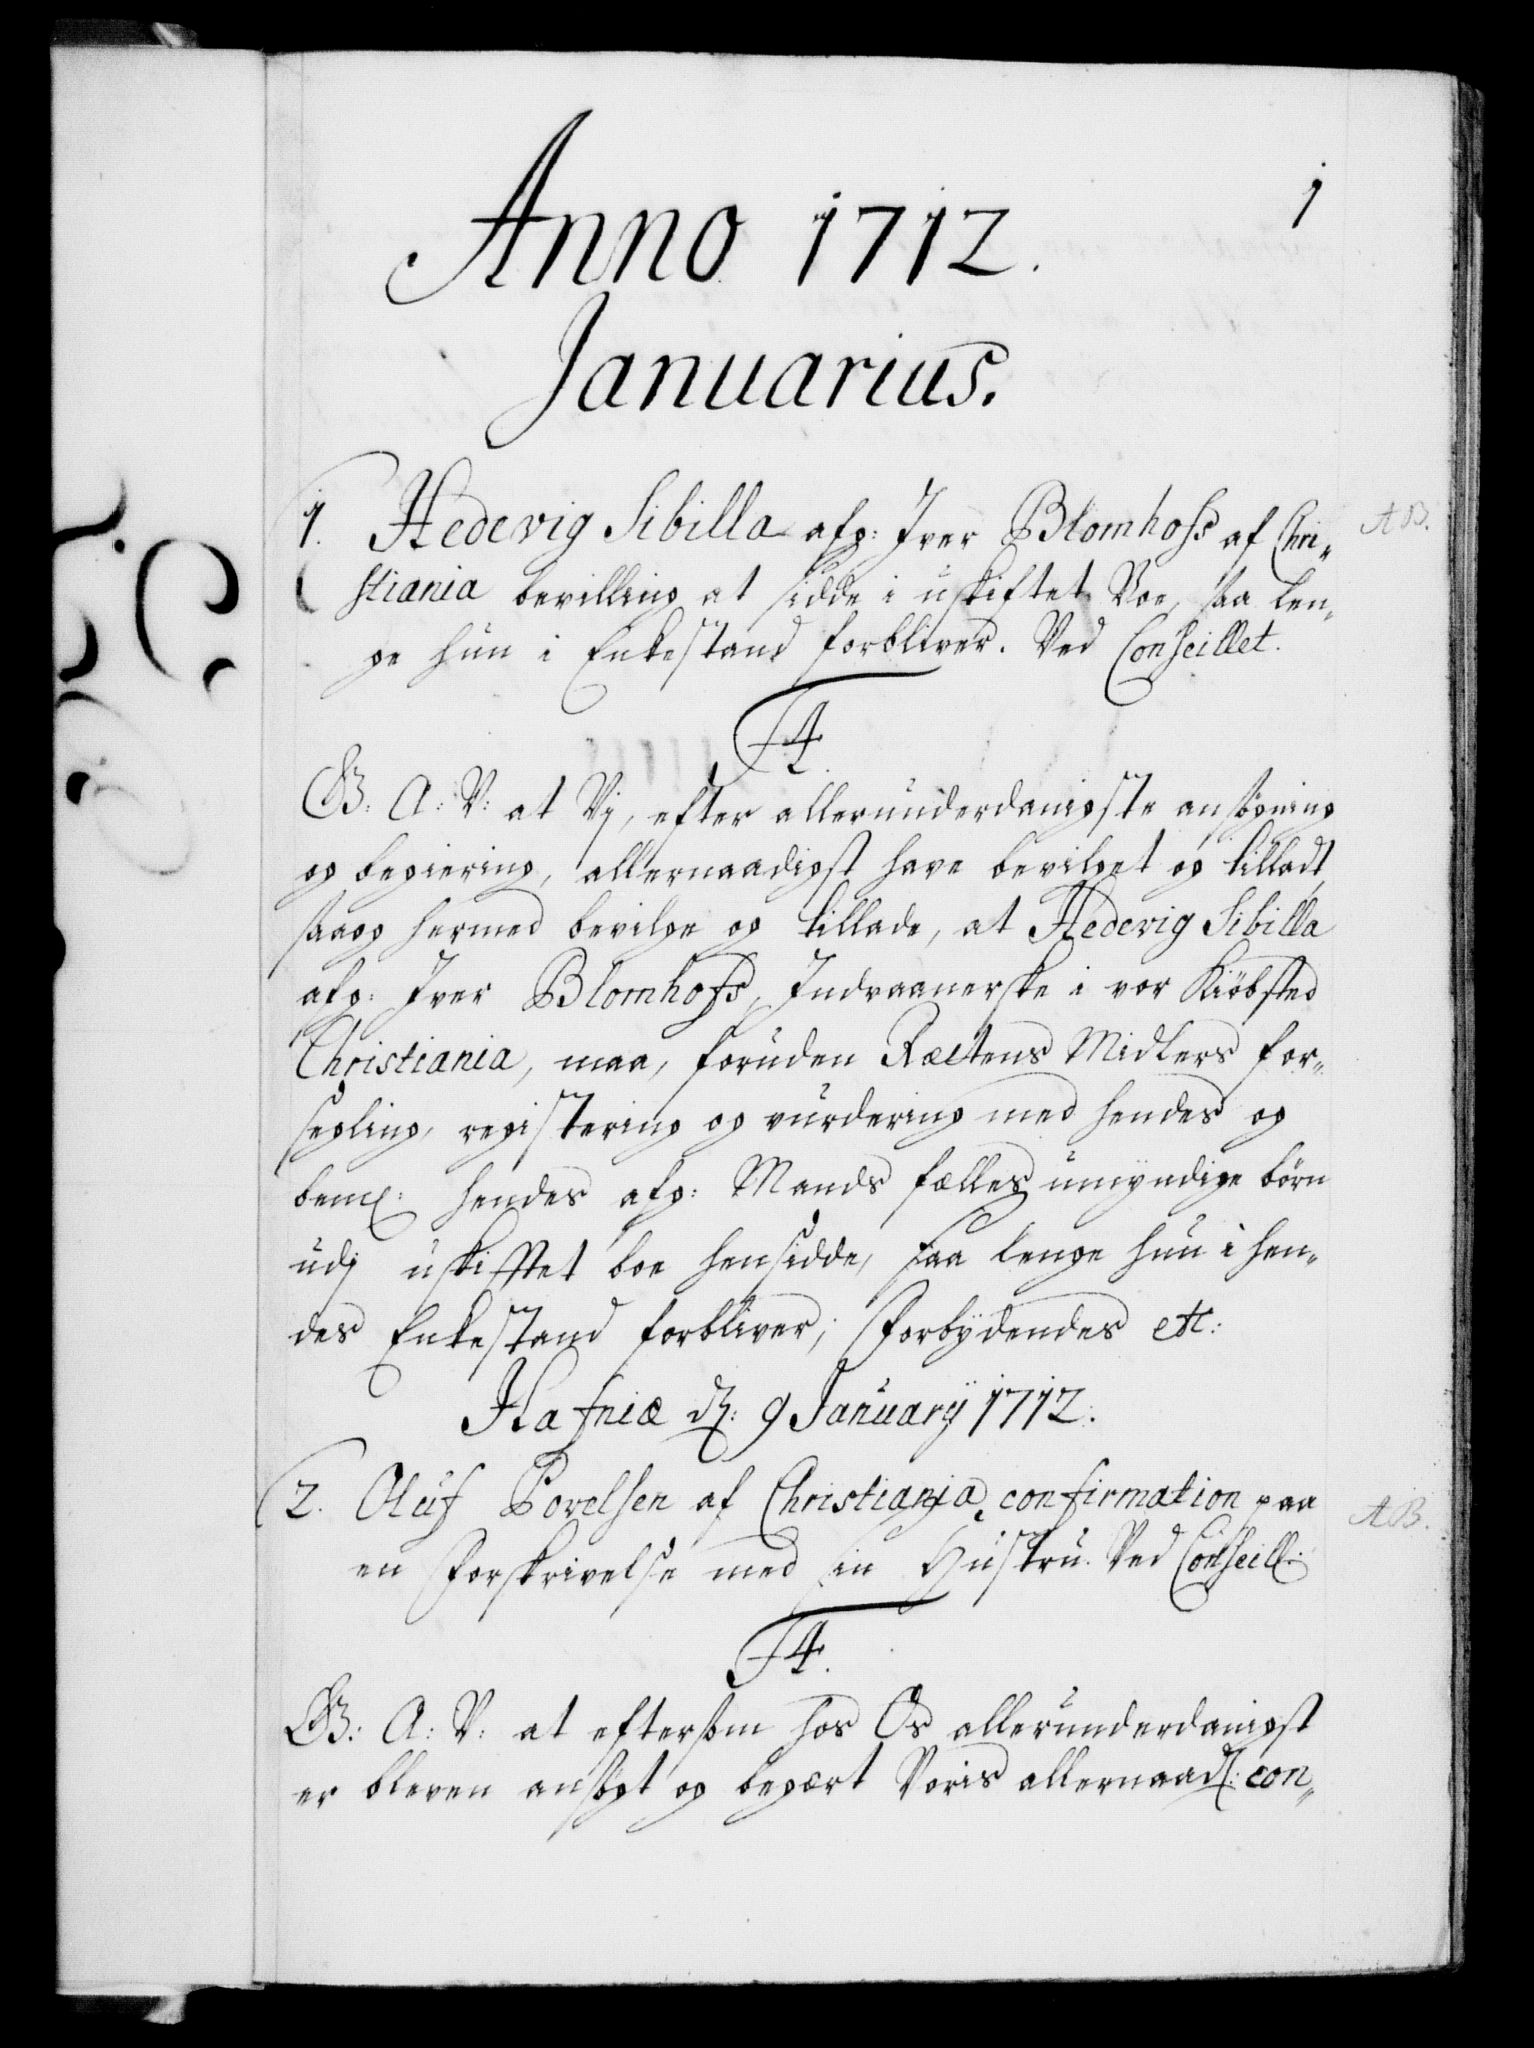 1
Anno 1712.
Januarius.
1. Hedevig Sibilla afg: Iver Blomhofs af Chri„
stiania bevilling at sidde i uskiftet Boe, saa len„
ge hun i Enkestand forbliver. Ved Conseillet.
A.B.
F4.
G: A: V: at Vj, efter allerunderdanigste ansøgning
og begiering, allernaadigst have bevilget og tilladt,
saaog hermed bevilge og tillade, at Hedevig Sibilla
afg: Iver Blomhofs, Indvaanerske i vor Kiøbsted
Christiania, maa, foruden Rættens Midlers for„
segling, registering og vurdering med hendes og
bem: hendes afg: Mands fælles umyndige børn
udj uskifftet boe hensidde, saa lenge hun i hen„
des Enkestand forbliver; Forbydendes etc:
Hafniæ d: 9 January 1712.
2. Oluf Povelsen af Christiania, confirmation paa
en Forskrivelse med sin Hustru. Ved Conseill:
A.B.
F4.
G: A: V: at eftersom hos Os allerunderdanigst
er bleven ansøgt og begært Voris allernaad: con„